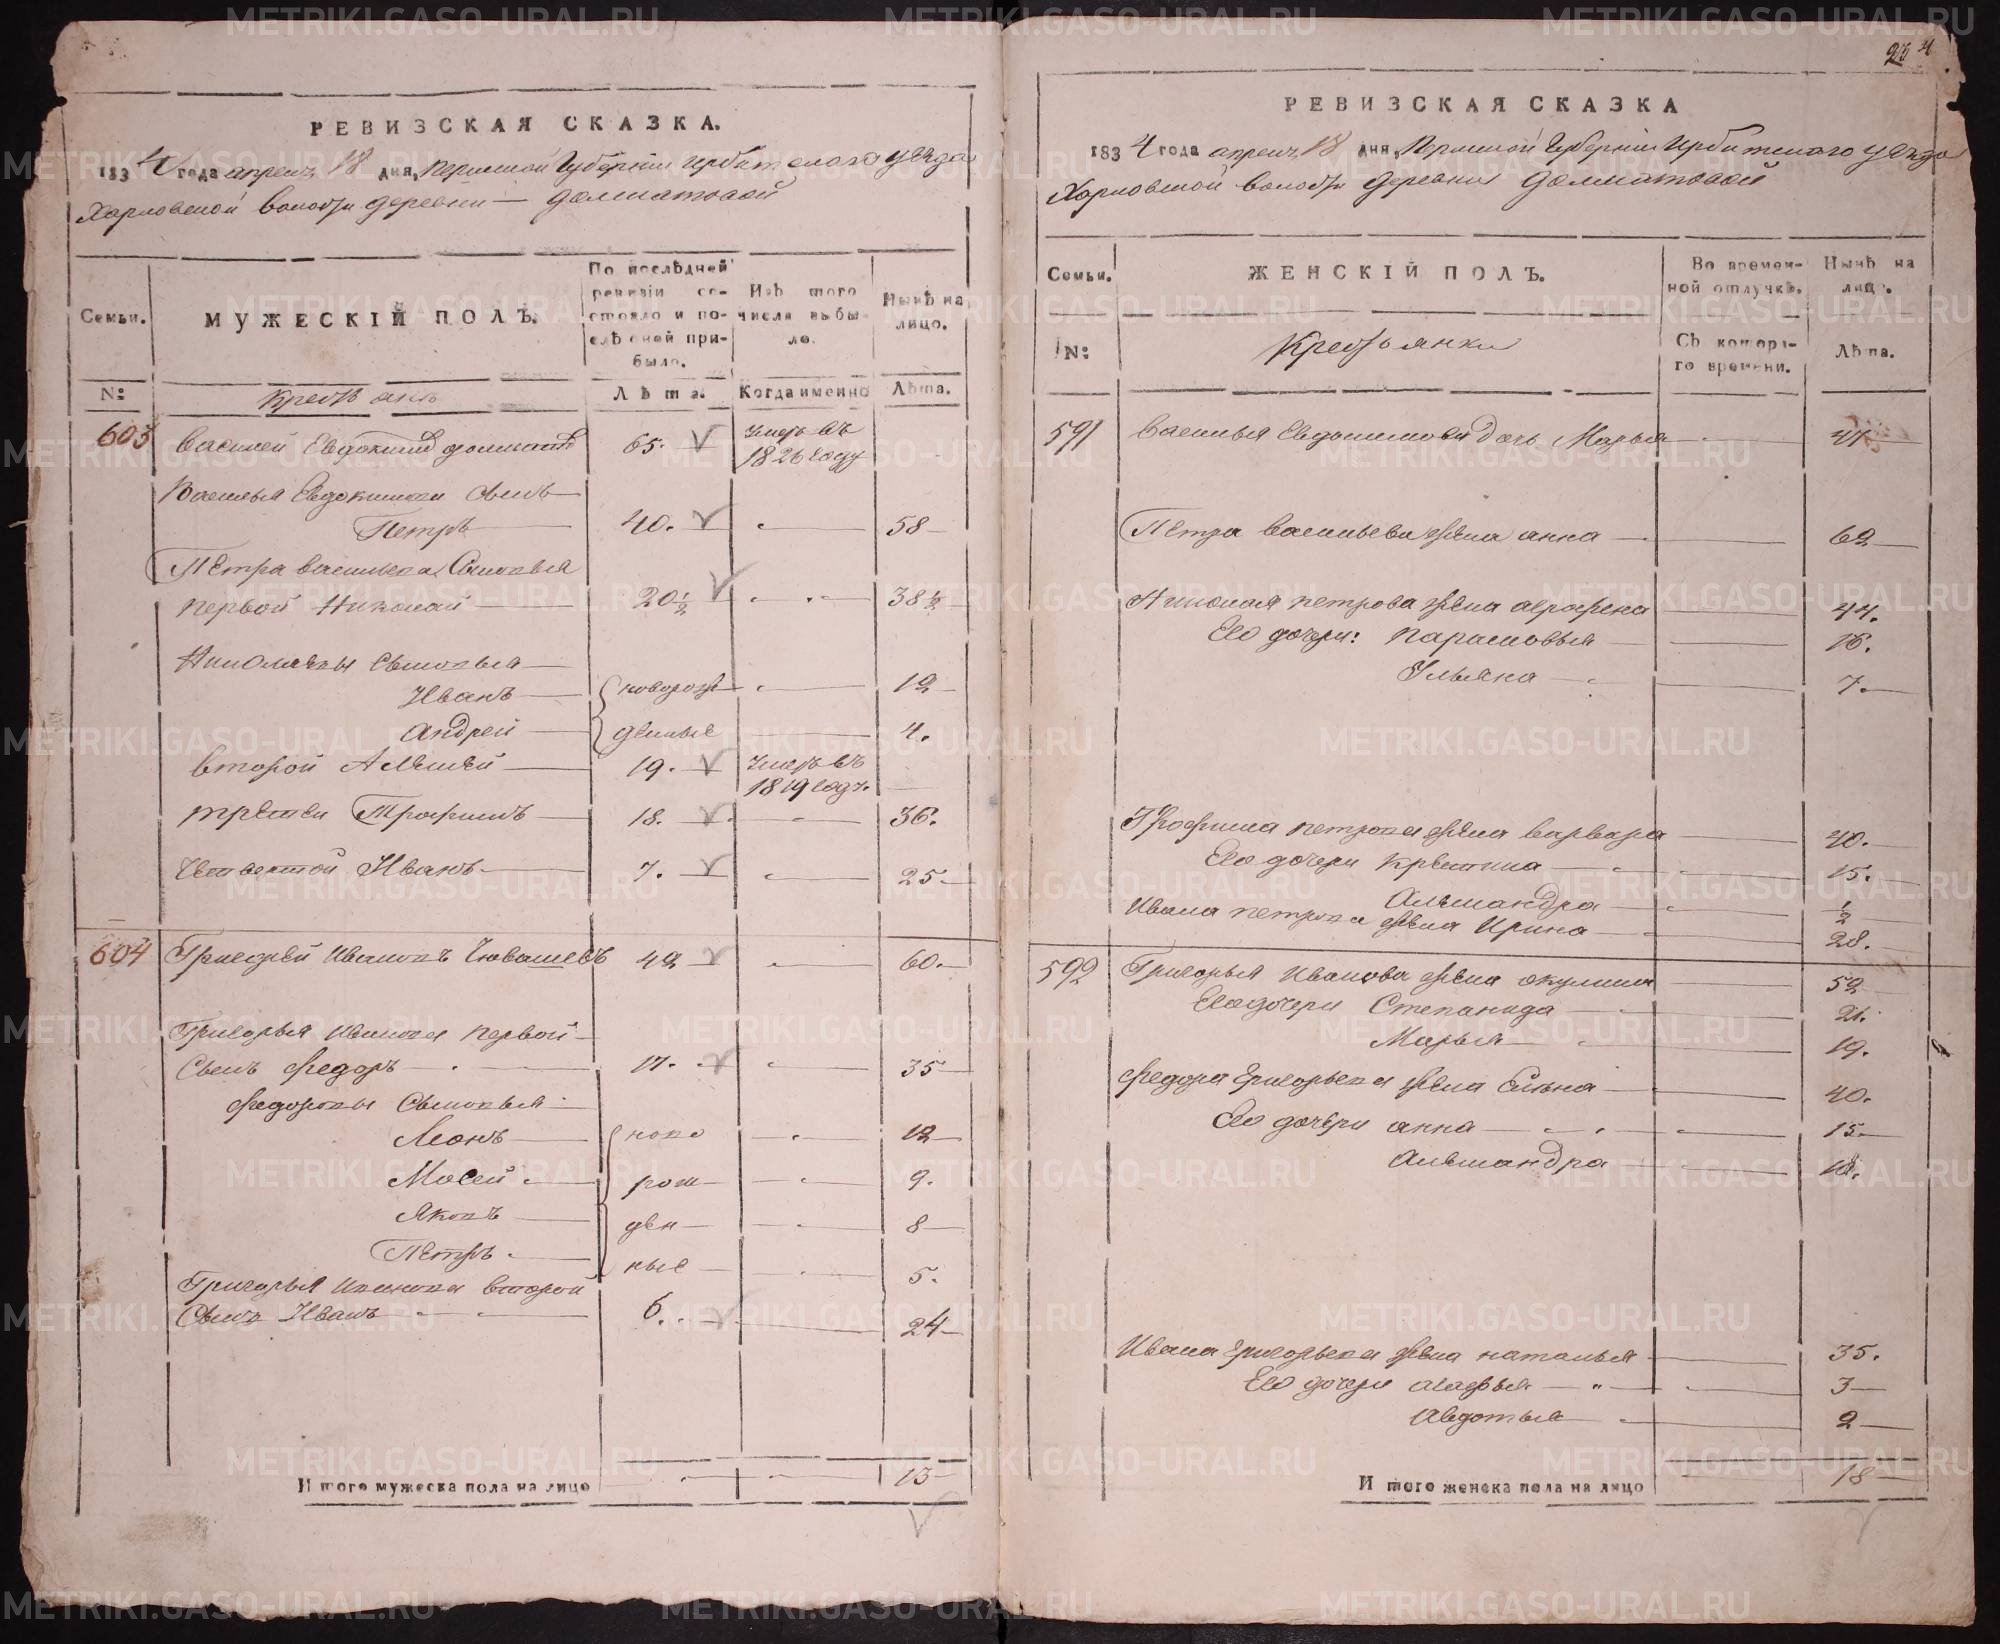 РЕВИЗСКАЯ СКАЗКА.
1834 года апреля 18 дня, Пермской Губернiи Ирбитскаго уезда
Харловской волости деревни — Долматовой
Семьи.
МУЖЕСКІЙ ПОЛЪ.
По послѣдней ревизіи состояло и послѣ оной прибыло.
Изъ того числа выбыло.
Нынѣ на лицо.
№:
Крестьянъ
Лѣта.
Когда именно
Лѣта.
603 Василей Евдокимовъ 65. Умеръ въ
1826 году
Василья Евдокимова сынъ
Петръ 40. 58
Петра Васильева Сыновья
первой Николай 20 1/2 38 1/2
Николаевы Сыновья
Иванъ новорож 12
Андрей денные 4.
второй Алексей 19. Умеръ въ
1819 году.
третей Трофимъ 18. 36.
Четвертой Иванъ 7. 25
604 Григорей Ивановъ Чювашевъ 42 60.
Григорья Иванова первой
Сынъ Федоръ 17. 35
Федоровы Сыновья
Леонъ ново 12
Мосей рож 9.
Яковъ ден 8
Петръ ные 5.
Григорья Иванова второй
Сынъ Иванъ 6. 24
Итого мужеска пола на лицо 13
РЕВИЗСКАЯ СКАЗКА
1834 года апреля 18 дня, Пермской Губернiи Ирбитскаго уезда
Харловской волости деревни Долматовой
Семьи.
ЖЕНСКІЙ ПОЛЪ.
Во временной отлучкѣ.
Нынѣ на лицо.
№:
Крестьянки
Съ котораго времени.
Лѣта.
591 Василья Евдокимова дочь Марья 41
Петра Васильева жена анна 62
Николая петрова жена аграфена 44.
Его дочери: парасковья 16.
Ульяна 7.
Трофима петрова жена варвара 40.
Его дочери крестина 15.
Александра 1/2
Ивана петрова жена Ирина 28.
592 Григорья Иванова жена окулина 52
Его дочери Степанида 21.
Марья 19.
Федора Григорьева жена Елена 40.
Его дочери анна 15
Александра
Ивана Григорьева жена наталья 35.
Его дочери агафья 3
Авдотья 2
Итого женска пола на лицо 18
METRIKI.GASO-URAL.RU